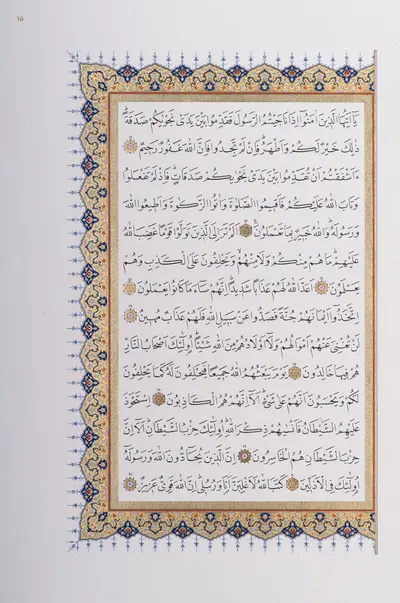 يَا اَيُّهَا الَّذ۪ينَ اٰمَنُٓوا اِذَا نَاجَيْتُمُ الرَّسُولَ فَقَدِّمُوا بَيْنَ يَدَيْ نَجْوٰيكُمْ صَدَقَةًۜ
ذٰلِكَ خَيْرٌ لَكُمْ وَاَطْهَرُۜ فَاِنْ لَمْ تَجِدُوا فَاِنَّ اللّٰهَ غَفُورٌ رَح۪يمٌ
ءَاَشْفَقْتُمْ اَنْ تُقَدِّمُوا بَيْنَ يَدَيْ نَجْوٰيكُمْ صَدَقَاتٍۜ فَاِذْ لَمْ تَفْعَلُوا
وَتَابَ اللّٰهُ عَلَيْكُمْ فَاَق۪يمُوا الصَّلٰوةَ وَاٰتُوا الزَّكٰوةَ وَاَط۪يعُوا اللّٰهَ
وَرَسُولَهُۜ وَاللّٰهُ خَب۪يرٌ بِمَا تَعْمَلُونَ اَلَمْ تَرَ اِلَى الَّذ۪ينَ تَوَلَّوْا قَوْمًا غَضِبَ اللّٰهُ
عَلَيْهِمْۜ مَا هُمْ مِنْكُمْ وَلَا مِنْهُمْۙ وَيَحْلِفُونَ عَلَى الْكَذِبِ وَهُمْ
يَعْلَمُونَ اَعَدَّ اللّٰهُ لَهُمْ عَذَابًا شَد۪يدًاۜ اِنَّهُمْ سَٓاءَ مَا كَانُوا يَعْمَلُونَ
اِتَّخَذُٓوا اَيْمَانَهُمْ جُنَّةً فَصَدُّوا عَنْ سَب۪يلِ اللّٰهِ فَلَهُمْ عَذَابٌ مُه۪ينٌ
لَنْ تُغْنِيَ عَنْهُمْ اَمْوَالُهُمْ وَلَٓا اَوْلَادُهُمْ مِنَ اللّٰهِ شَيْـًٔاۜ اُو۬لٰٓئِكَ اَصْحَابُ النَّارِۜ
هُمْ ف۪يهَا خَالِدُونَ يَوْمَ يَبْعَثُهُمُ اللّٰهُ جَم۪يعًا فَيَحْلِفُونَ لَهُ كَمَا يَحْلِفُونَ
لَكُمْ وَيَحْسَبُونَ اَنَّهُمْ عَلٰى شَيْءٍۜ اَلَٓا اِنَّهُمْ هُمُ الْكَاذِبُونَ اِسْتَحْوَذَ
عَلَيْهِمُ الشَّيْطَانُ فَاَنْسٰيهُمْ ذِكْرَ اللّٰهِۜ اُو۬لٰٓئِكَ حِزْبُ الشَّيْطَانِۜ اَلَٓا اِنَّ
حِزْبَ الشَّيْطَانِ هُمُ الْخَاسِرُونَ اِنَّ الَّذ۪ينَ يُحَٓادُّونَ اللّٰهَ وَرَسُولَهُٓ
اُو۬لٰٓئِكَ فِي الْاَذَلّ۪ينَ كَتَبَ اللّٰهُ لَاَغْلِبَنَّ اَنَا۬ وَرُسُل۪يۜ اِنَّ اللّٰهَ قَوِيٌّ عَز۪يزٌ